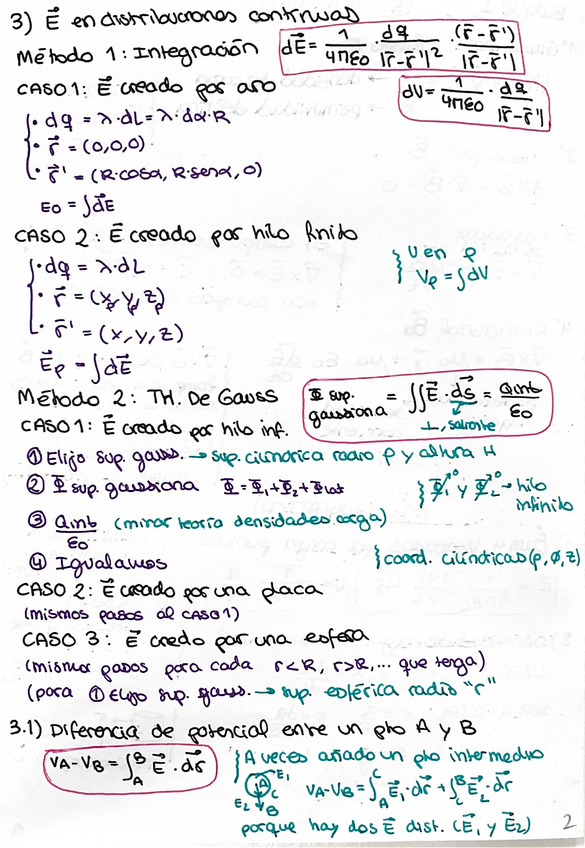 3) E⃗ en distribuciones continuas
Método 1: Integración dE⃗ = 1/4πε0 · dq/|r̄-r̄'|² · (r̄-r̄')/|r̄-r̄'|
CASO 1: E⃗ creado por aro dV = 1/4πε0 · dq/|r̄-r̄'|
· dq = λ·dL = λ·dα·R
· r⃗ = (0,0,0)
· r⃗' = (R·cosα, R·senα, 0)
E0 = ∫dE⃗
CASO 2: E⃗ creado por hilo finito
· dq = λ·dL } V en P
· r⃗ = (xp, yp, zp) Vp = ∫dV
· r⃗' = (x, y, z)
E⃗p = ∫dE⃗
Método 2: TH. De Gauss Φ sup. gaussiana = ∬E⃗·ds⃗ = Qint/ε0
⊥, saliente
CASO 1: E⃗ creado por hilo inf.
① Elijo sup. gauss. → sup. cilíndrica radio ρ y altura H
② Φ sup. gaussiana Φ = Φ1+Φ2+Φlat } Φ1→0 y Φ2→0 → hilo infinito
③ Qint/ε0 (mirar teoría densidades carga)
④ Igualamos } coord. cilíndricas (ρ, ø, z)
CASO 2: E⃗ creado por una placa
(mismos pasos al CASO 1)
CASO 3: E⃗ credo por una esfera
(mismos pasos para cada r<R, r>R,... que tenga)
(para ① Elijo sup. gauss. → sup. esférica radio "r"
3.1) Diferencia de potencial entre un pto A y B
VA-VB = ∫_A^B E⃗·dr⃗ } A veces añado un pto intermedio
A E1 C E2 B VA-VB = ∫_A^C E⃗1·dr⃗ + ∫_C^B E⃗2·dr⃗
porque hay dos E⃗ dist. (E⃗1 y E⃗2) 2